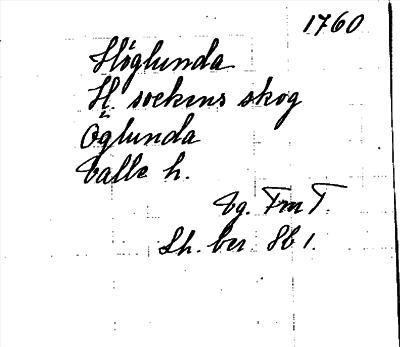 1760
Höglunda
H. sockens skog
Öglunda
Valle h.
Vg. Fm T.
Lh. ber. Hb 1.